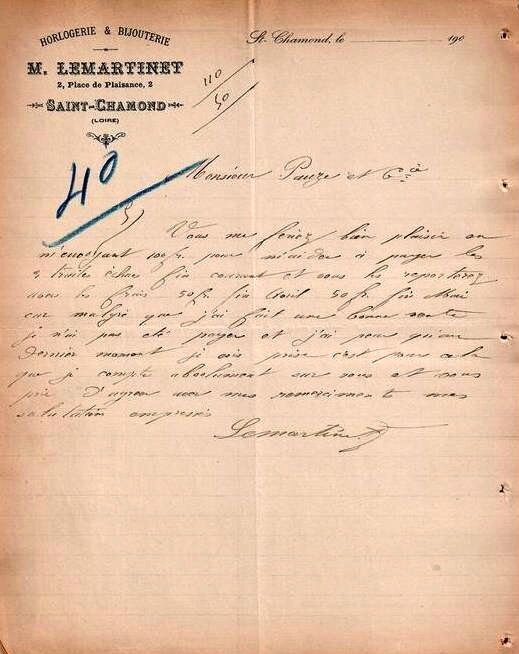 HORLOGERIE & BIJOUTERIE
M. LEMARTINET
2, Place de Plaisance, 2
SAINT-CHAMOND
(LOIRE)
St-Chamond, le 190
110
50
40
Monsieur Pauze et Cie
Vous me feriez bien plaisir en
m'envoyant 100 fr. pour m'aider à payer les
traites fin courant et vous les reporterez
avec les frais 50 fr. fin Avril 50 fr. fin Mai
car malgré que j'ai fait une bonne vente
je n'ai pas été payer et j'ai peur qu'au
dernier moment je sois prise c'est pour cela
que je compte absolument sur vous et vous
prie D'agréer avec mes remerciments mes
salutation empressés
Lemartinet